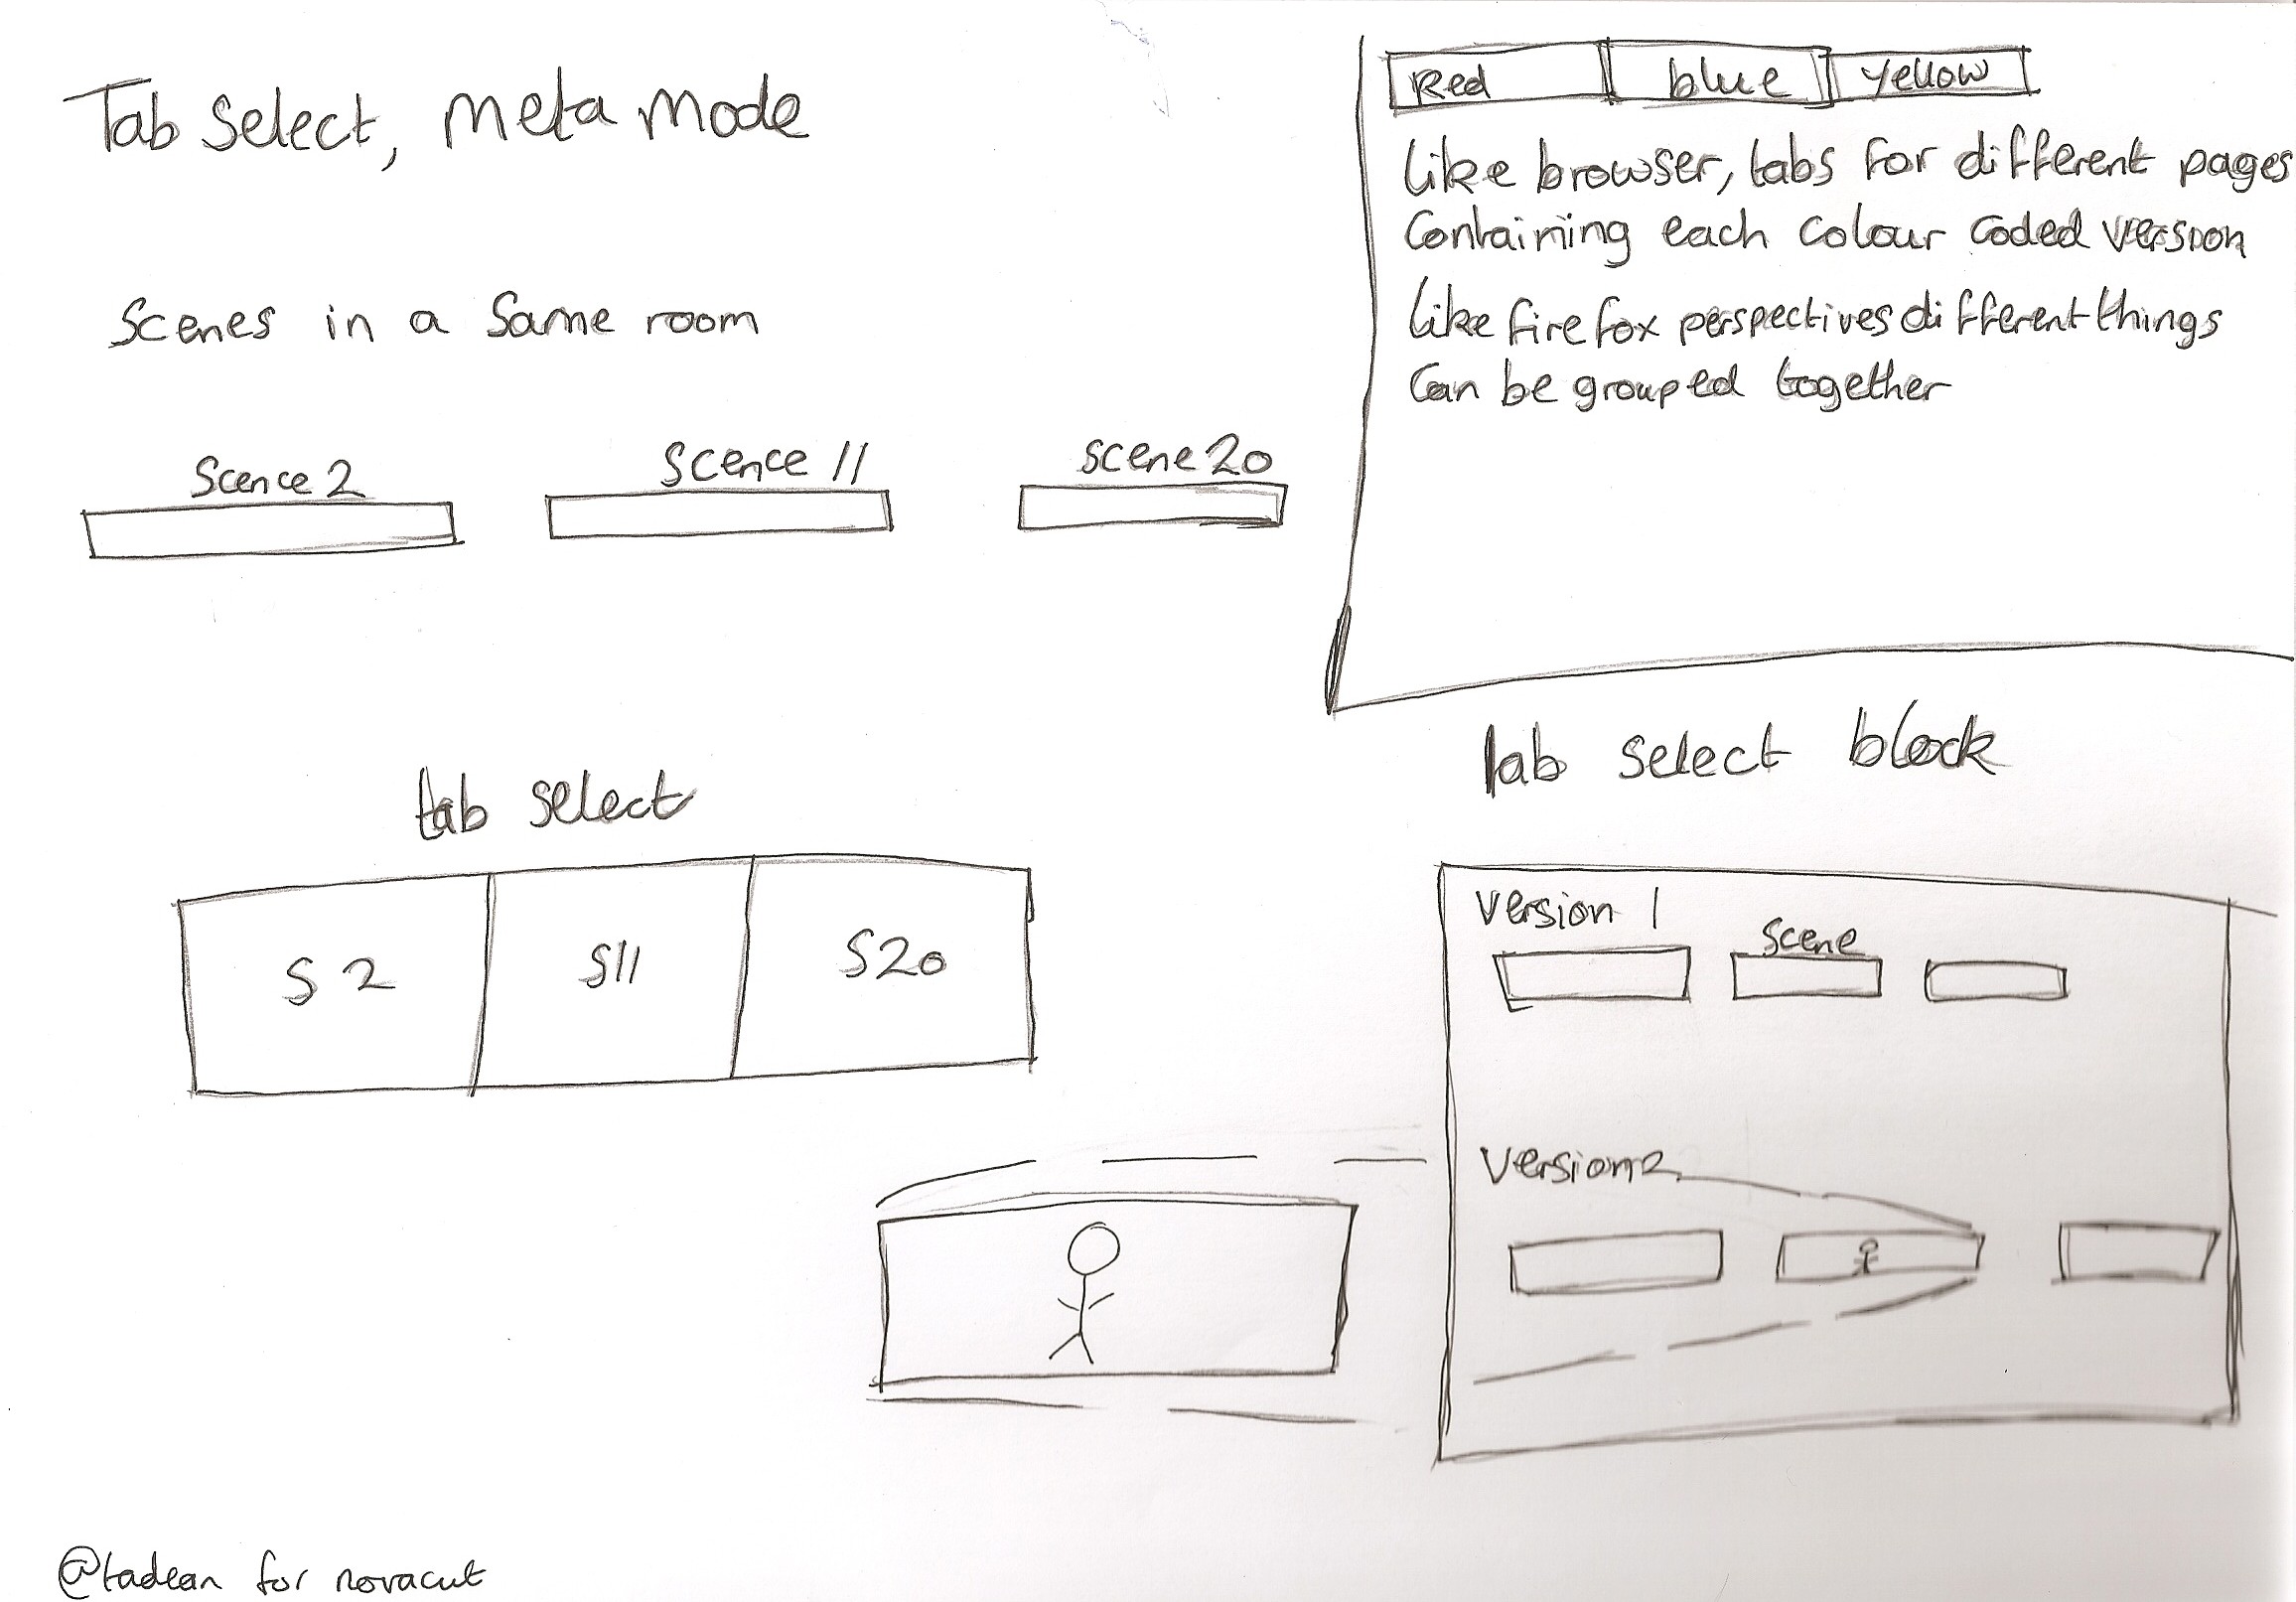 Tab select, meta mode
scenes in a same room
Scence 2
scence 11
scene 20
tab select
S 2
S11
S20
Red
blue
yellow
like browser, tabs for different pages
containing each colour coded version
like firefox perspectives different things
can be grouped together
tab select block
Version 1
scene
Version 2
@tadean for novacut